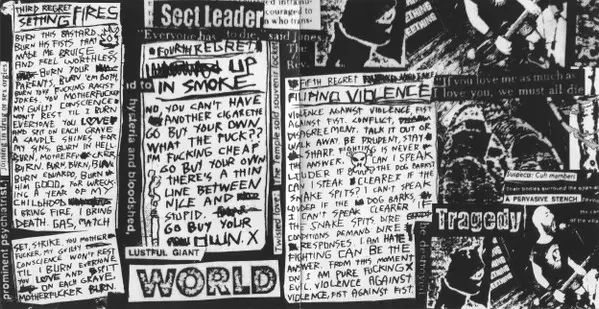 THIRD REGRET
SETTING FIRES
BURN THIS BASTARD.
BURN HIS FISTS THAT
MADE ME BRUISE
AND FEEL WORTHLESS
BURN YOUR
PARENTS. BURN 'EM BOTH.
BURN THE FUCKING RACIST
JOKES. YOU MOTHERFUCKER
MY GUILTY CONSCIENCE
WON'T REST TIL I BURN
EVERYONE YOU LOVE
AND SPIT ON EACH GRAVE
A CANDLE SHINES FOR
MY SINS. BURN IN HELL
BURN, MOTHERFUCKER,
BURN. BURN, BURN, BURN
BURN EDUARDO, BURN
HIM GOOD, FOR WRECK-
ING A YEAR OF MY
CHILDHOOD
I BRING FIRE, I BRING
DEATH. GAS, MATCH
SET, STRIKE. YOU MOTHER
FUCKER, MY GUILTY
CONSCIENCE WON'T REST
TIL I BURN EVERYONE
YOU LOVE AND SPIT
ON EACH GRAVE.
MOTHERFUCKER BURN.
prominent psychiatrist.
joining in drug & sex orgies
Sect Leader
"Everyone has to die," said Jones.
FOURTH REGRET
UP
IN SMOKE
NO, YOU CAN'T HAVE
ANOTHER CIGARETTE
GO BUY YOUR OWN
WHAT THE FUCK??
I'M FUCKING CHEAP
GO BUY YOUR OWN
THERE'S A THIN
LINE BETWEEN
NICE AND
STUPID.
GO BUY YOUR
OWN. X
hysteria and bloodshed
LUSTFUL GIANT
WORLD
Twisted love:
The Temple sold souvenir locket
encouraged to
The
Rev.
FIFTH REGRET
FILMING VIOLENCE
VIOLENCE AGAINST VIOLENCE, FIST
AGAINST FIST. CONFLICT,
DISAGREEMENT. TALK IT OUT OR
WALK AWAY. BE PRUDENT, STAY
SHARP. FIGHTING IS NEVER
THE ANSWER. CAN I SPEAK
LOUDER IF THE DOG BARKS
CAN I SPEAK CLEARER IF THE
SNAKE SPITS? I CAN'T SPEAK
LOUDER IF THE DOG BARKS,
I CAN'T SPEAK CLEARER
IF THE SNAKE SPITS. DIRE
CONDITIONS DEMAND DIRE
RESPONSES. I AM HATE
FIGHTING CAN BE THE
ANSWER. FROM THIS MOMENT
ON I AM PURE FUCKING
EVIL. VIOLENCE AGAINST
VIOLENCE, FIST AGAINST FIST.
"If you love me as much as
I love you, we must all die
Suspects: Cult members
their bodies surround the
A PERVASIVE STENCH
Tragedy